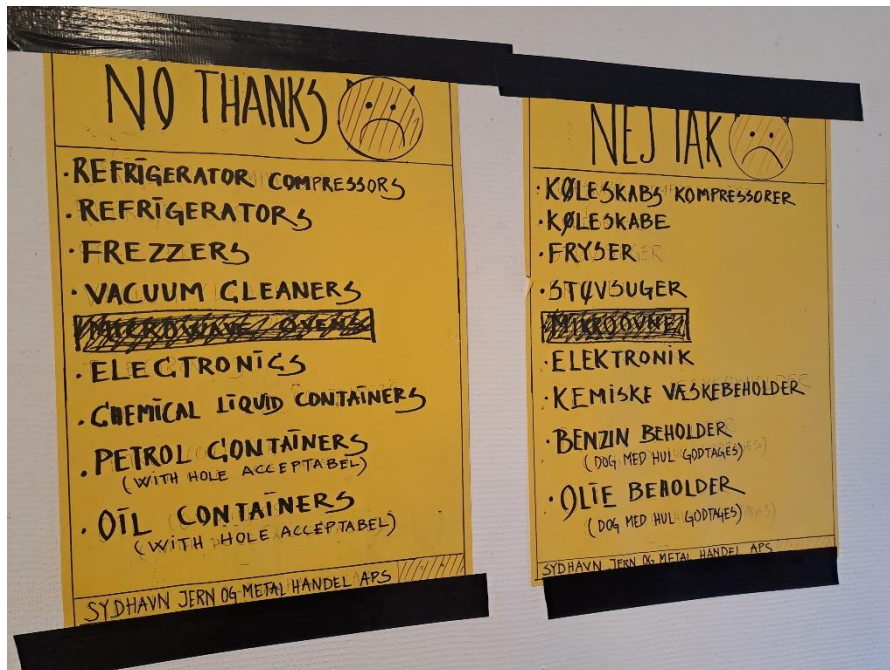 NO THANKS
• REFRIGERATOR COMPRESSORS
• REFRIGERATORS
• FREZZERS
• VACUUM CLEANERS
MICROWAVE OVENS
• ELECTRONICS
• CHEMICAL LIQUID CONTAINERS
• PETROL CONTAINERS
(WITH HOLE ACCEPTABEL)
• OIL CONTAINERS
(WITH HOLE ACCEPTABEL)
SYDHAVN JERN OG METAL HANDEL APS
NEJ TAK
• KØLESKABS KOMPRESSORER
• KØLESKABE
• FRYSER
• STØVSUGER
MIKROOVNE
• ELEKTRONIK
• KEMISKE VÆSKEBEHOLDER
• BENZIN BEHOLDER
(DOG MED HUL GODTAGES)
• OLIE BEHOLDER
(DOG MED HUL GODTAGES)
SYDHAVN JERN OG METAL HANDEL APS